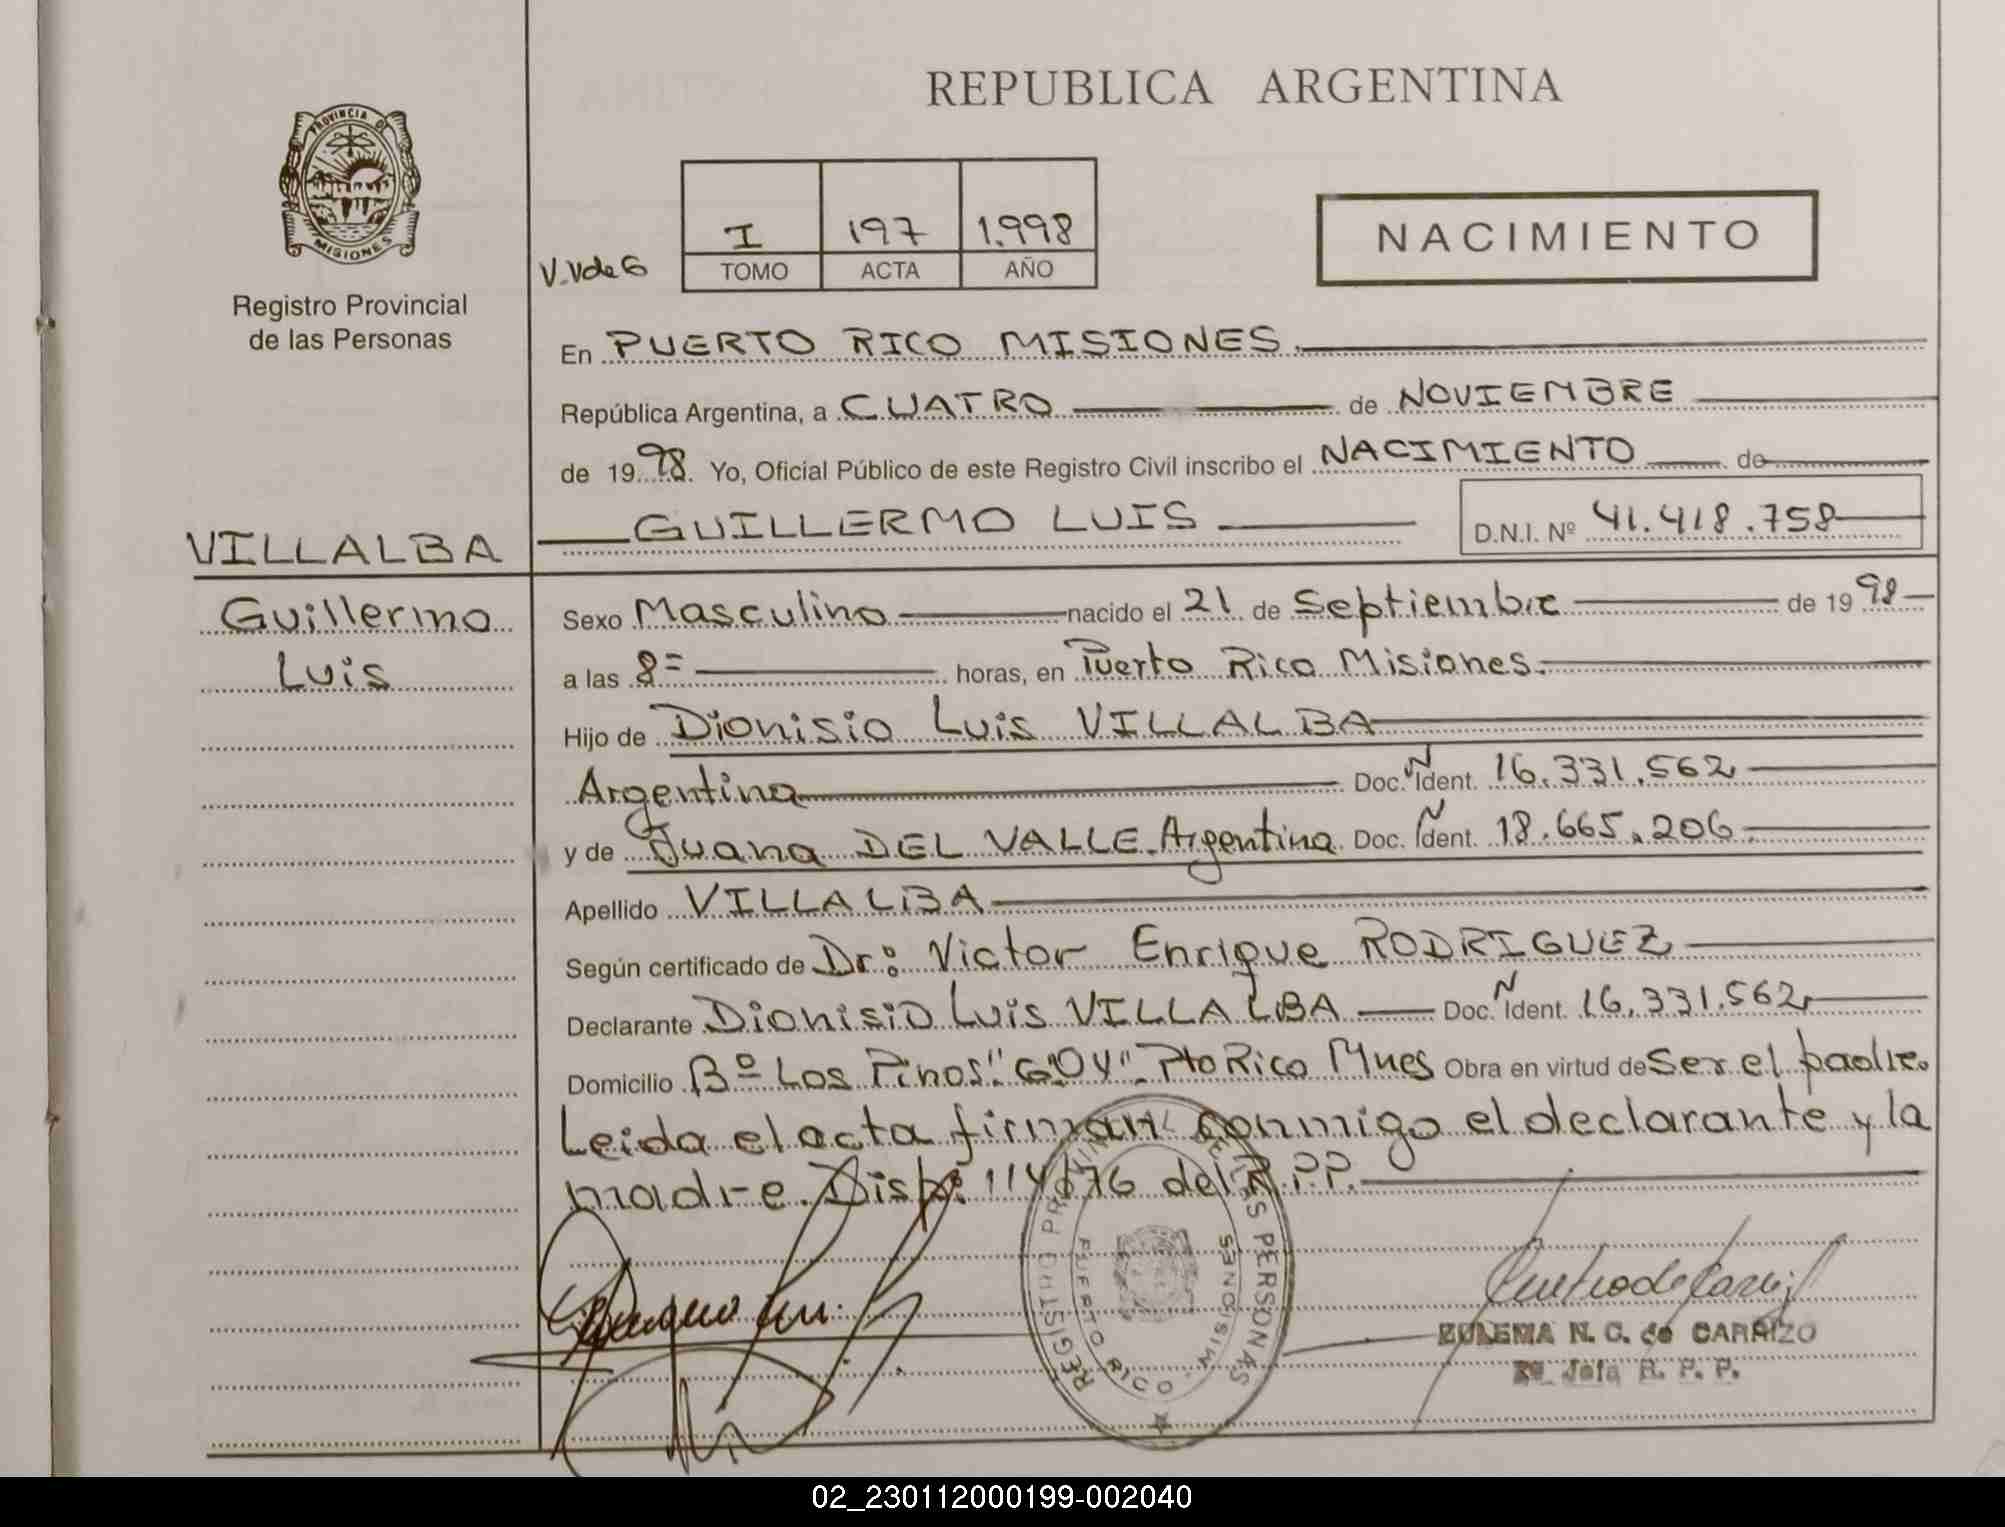 REPUBLICA ARGENTINA
PROVINCIA DE
MISIONES
Registro Provincial
de las Personas
V.VdeG
I 197 1.998
TOMO ACTA AÑO
NACIMIENTO
En PUERTO RICO MISIONES.
República Argentina, a CUATRO de NOVIEMBRE
de 1998. Yo, Oficial Público de este Registro Civil inscribo el NACIMIENTO de
VILLALBA GUILLERMO LUIS D.N.I. Nº 41.418.758
Guillermo
Luis
Sexo Masculino nacido el 21 de Septiembre de 1998
a las 8= horas, en Puerto Rico Misiones.
Hijo de Dionisio Luis VILLALBA
Argentina Doc. Ñ Ident. 16.331.562
y de Juana DEL VALLE. Argentina Doc. Ñ Ident. 18.665.206
Apellido VILLALBA
Según certificado de Dr: Victor Enrique RODRIGUEZ
Declarante Dionisio Luis VILLALBA Doc. Ñ Ident. 16.331.562
Domicilio Bº Los Pinos "GOY" Pto Rico Mnes Obra en virtud de Ser el padre.
Leida el acta firman conmigo el declarante y la
madre. Disp: 114/76 del R.P.P.
REGISTRO PROVINCIAL DE LAS PERSONAS
PUERTO RICO - MISIONES
ZULEMA N. C. de CARRIZO
Jefa R. P. P.
02_230112000199-002040